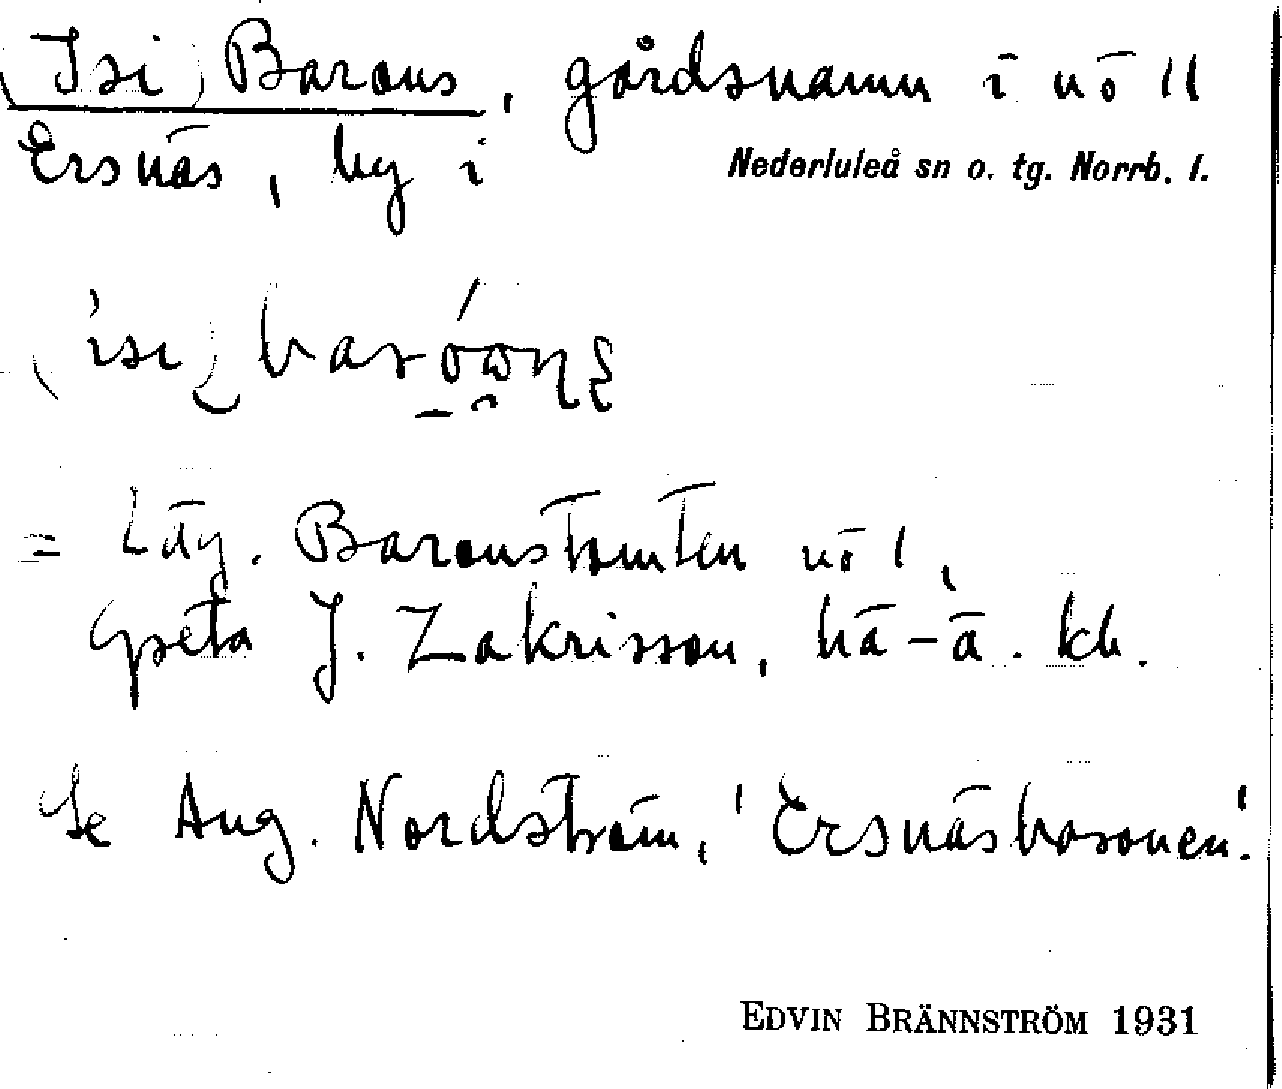 (Isi) Barons, gårdsnamn i nö 11
Ersnäs, by i Nederluleå sn o. tg. Norrb. l.
= Läg. Baronstomten nö 1,
Greta J. Zakrisson, hä-ä. kh.
Se Aug. Nordström, 'Ersnäsbaronen'.
EDVIN BRÄNNSTRÖM 1931